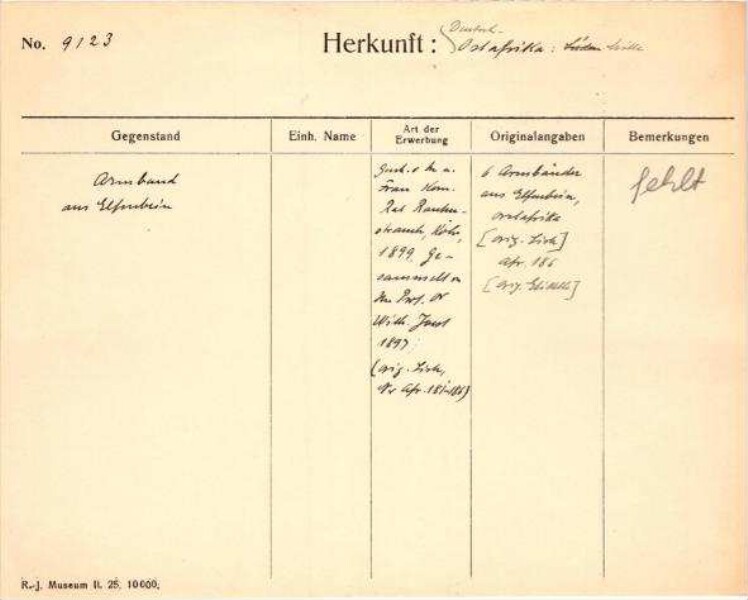 No. 9123
Herkunft: Deutsch-
Ostafrika:
Gegenstand
Einh. Name
Art der
Erwerbung
Originalangaben
Bemerkungen
Armband
aus Elfenbein
Gesch. v. H. u.
Frau Kom.
Rat Rauten-
strauch, Köln,
1899, Ge-
sammelt v.
Hn Prof. Dr
Wilh. Joest
1897;
(orig. Liste,
Nr Afr. 181-186)
6 Armbänder
aus Elfenbein,
Ostafrika
[orig. Liste]
Afr. 186
[orig. Etikett]
fehlt
R.-J. Museum II. 25. 10000.